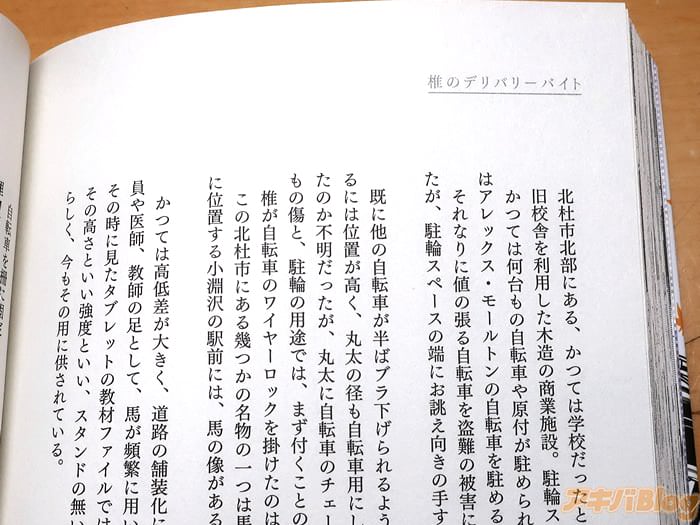 椎のデリバリーバイト
北杜市北部にある、かつては学校だったと
旧校舎を利用した木造の商業施設。駐輪ス
かつては何台もの自転車や原付が駐められ
はアレックス・モールトンの自転車を駐める
それなりに値の張る自転車を盗難の被害に
たが、駐輪スペースの端にお誂え向きの手す
既に他の自転車が半ばブラ下げられるよう
るには位置が高く、丸太の径も自転車用にし
たのか不明だったが、丸太に自転車のチェー
もの傷と、駐輪の用途では、まず付くことの
椎が自転車のワイヤーロックを掛けたのは
この北杜市にある幾つかの名物の一つは馬
に位置する小淵沢の駅前には、馬の像がある
かつては高低差が大きく、道路の舗装化に
員や医師、教師の足として、馬が頻繁に用い
その時に見たタブレットの教材ファイルでは
その高さといい強度といい、スタンドの無い
らしく、今もその用に供されている。
アキバBlog